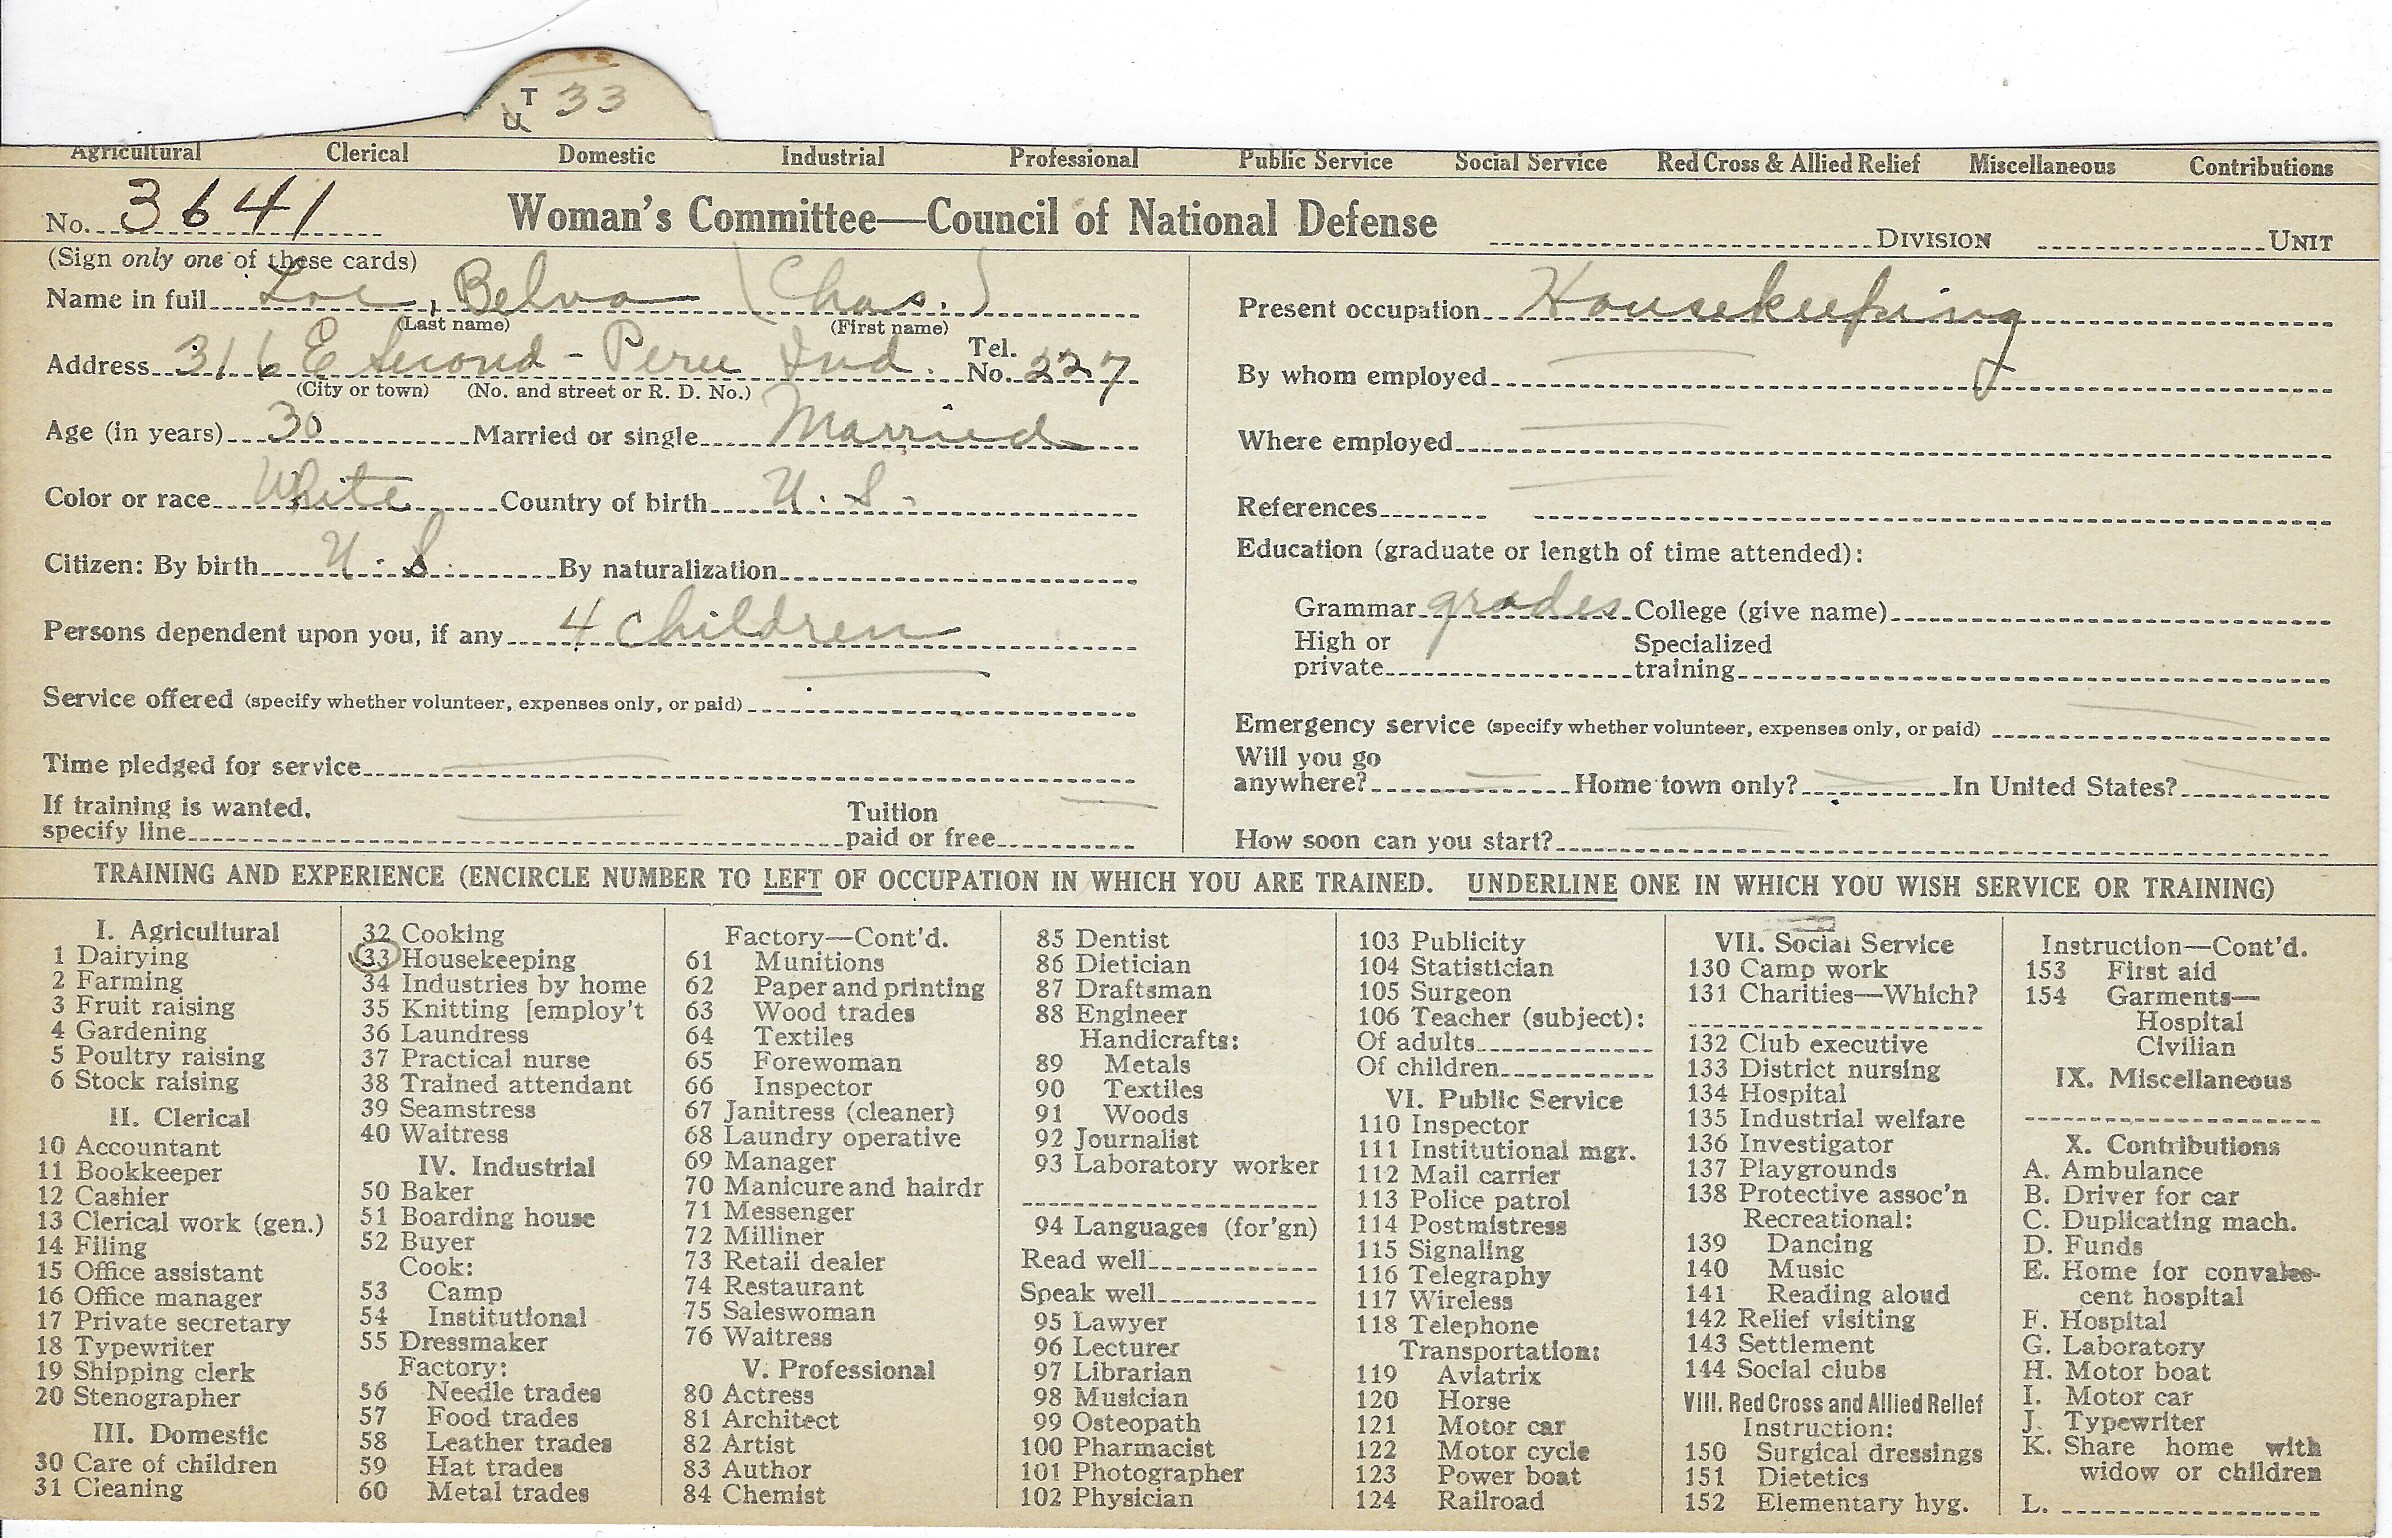 T 33
U
Agricultural Clerical Domestic Industrial Professional Public Service Social Service Red Cross & Allied Relief Miscellaneous Contributions
No. 3641 Woman's Committee—Council of National Defense DIVISION UNIT
(Sign only one of these cards)
Name in full Belva (Chas.)
(Last name) (First name)
Address 316 E Second - Peru Ind. Tel. No. 227
(City or town) (No. and street or R. D. No.)
Age (in years) 30 Married or single Married
Color or race White Country of birth U.S.
Citizen: By birth U.S. By naturalization
Persons dependent upon you, if any 4 children
Service offered (specify whether volunteer, expenses only, or paid)
Time pledged for service
If training is wanted, specify line Tuition paid or free
Present occupation Housekeeping
By whom employed
Where employed
References
Education (graduate or length of time attended):
Grammar grades College (give name)
High or private Specialized training
Emergency service (specify whether volunteer, expenses only, or paid)
Will you go anywhere? Home town only? In United States?
How soon can you start?
TRAINING AND EXPERIENCE (ENCIRCLE NUMBER TO LEFT OF OCCUPATION IN WHICH YOU ARE TRAINED. UNDERLINE ONE IN WHICH YOU WISH SERVICE OR TRAINING)
I. Agricultural
1 Dairying
2 Farming
3 Fruit raising
4 Gardening
5 Poultry raising
6 Stock raising
II. Clerical
10 Accountant
11 Bookkeeper
12 Cashier
13 Clerical work (gen.)
14 Filing
15 Office assistant
16 Office manager
17 Private secretary
18 Typewriter
19 Shipping clerk
20 Stenographer
III. Domestic
30 Care of children
31 Cleaning
32 Cooking
33 Housekeeping
34 Industries by home
35 Knitting [employ't
36 Laundress
37 Practical nurse
38 Trained attendant
39 Seamstress
40 Waitress
IV. Industrial
50 Baker
51 Boarding house
52 Buyer
Cook:
53 Camp
54 Institutional
55 Dressmaker
Factory:
56 Needle trades
57 Food trades
58 Leather trades
59 Hat trades
60 Metal trades
Factory—Cont'd.
61 Munitions
62 Paper and printing
63 Wood trades
64 Textiles
65 Forewoman
66 Inspector
67 Janitress (cleaner)
68 Laundry operative
69 Manager
70 Manicure and hairdr
71 Messenger
72 Milliner
73 Retail dealer
74 Restaurant
75 Saleswoman
76 Waitress
V. Professional
80 Actress
81 Architect
82 Artist
83 Author
84 Chemist
85 Dentist
86 Dietician
87 Draftsman
88 Engineer
Handicrafts:
89 Metals
90 Textiles
91 Woods
92 Journalist
93 Laboratory worker
94 Languages (for'gn)
Read well
Speak well
95 Lawyer
96 Lecturer
97 Librarian
98 Musician
99 Osteopath
100 Pharmacist
101 Photographer
102 Physician
103 Publicity
104 Statistician
105 Surgeon
106 Teacher (subject):
Of adults
Of children
VI. Public Service
110 Inspector
111 Institutional mgr.
112 Mail carrier
113 Police patrol
114 Postmistress
115 Signaling
116 Telegraphy
117 Wireless
118 Telephone
Transportation:
119 Aviatrix
120 Horse
121 Motor car
122 Motor cycle
123 Power boat
124 Railroad
VII. Social Service
130 Camp work
131 Charities—Which?
132 Club executive
133 District nursing
134 Hospital
135 Industrial welfare
136 Investigator
137 Playgrounds
138 Protective assoc'n
Recreational:
139 Dancing
140 Music
141 Reading aloud
142 Relief visiting
143 Settlement
144 Social clubs
VIII. Red Cross and Allied Relief
Instruction:
150 Surgical dressings
151 Dietetics
152 Elementary hyg.
Instruction—Cont'd.
153 First aid
154 Garments—
Hospital
Civilian
IX. Miscellaneous
X. Contributions
A. Ambulance
B. Driver for car
C. Duplicating mach.
D. Funds
E. Home for convales-
cent hospital
F. Hospital
G. Laboratory
H. Motor boat
I. Motor car
J. Typewriter
K. Share home with
widow or children
L.